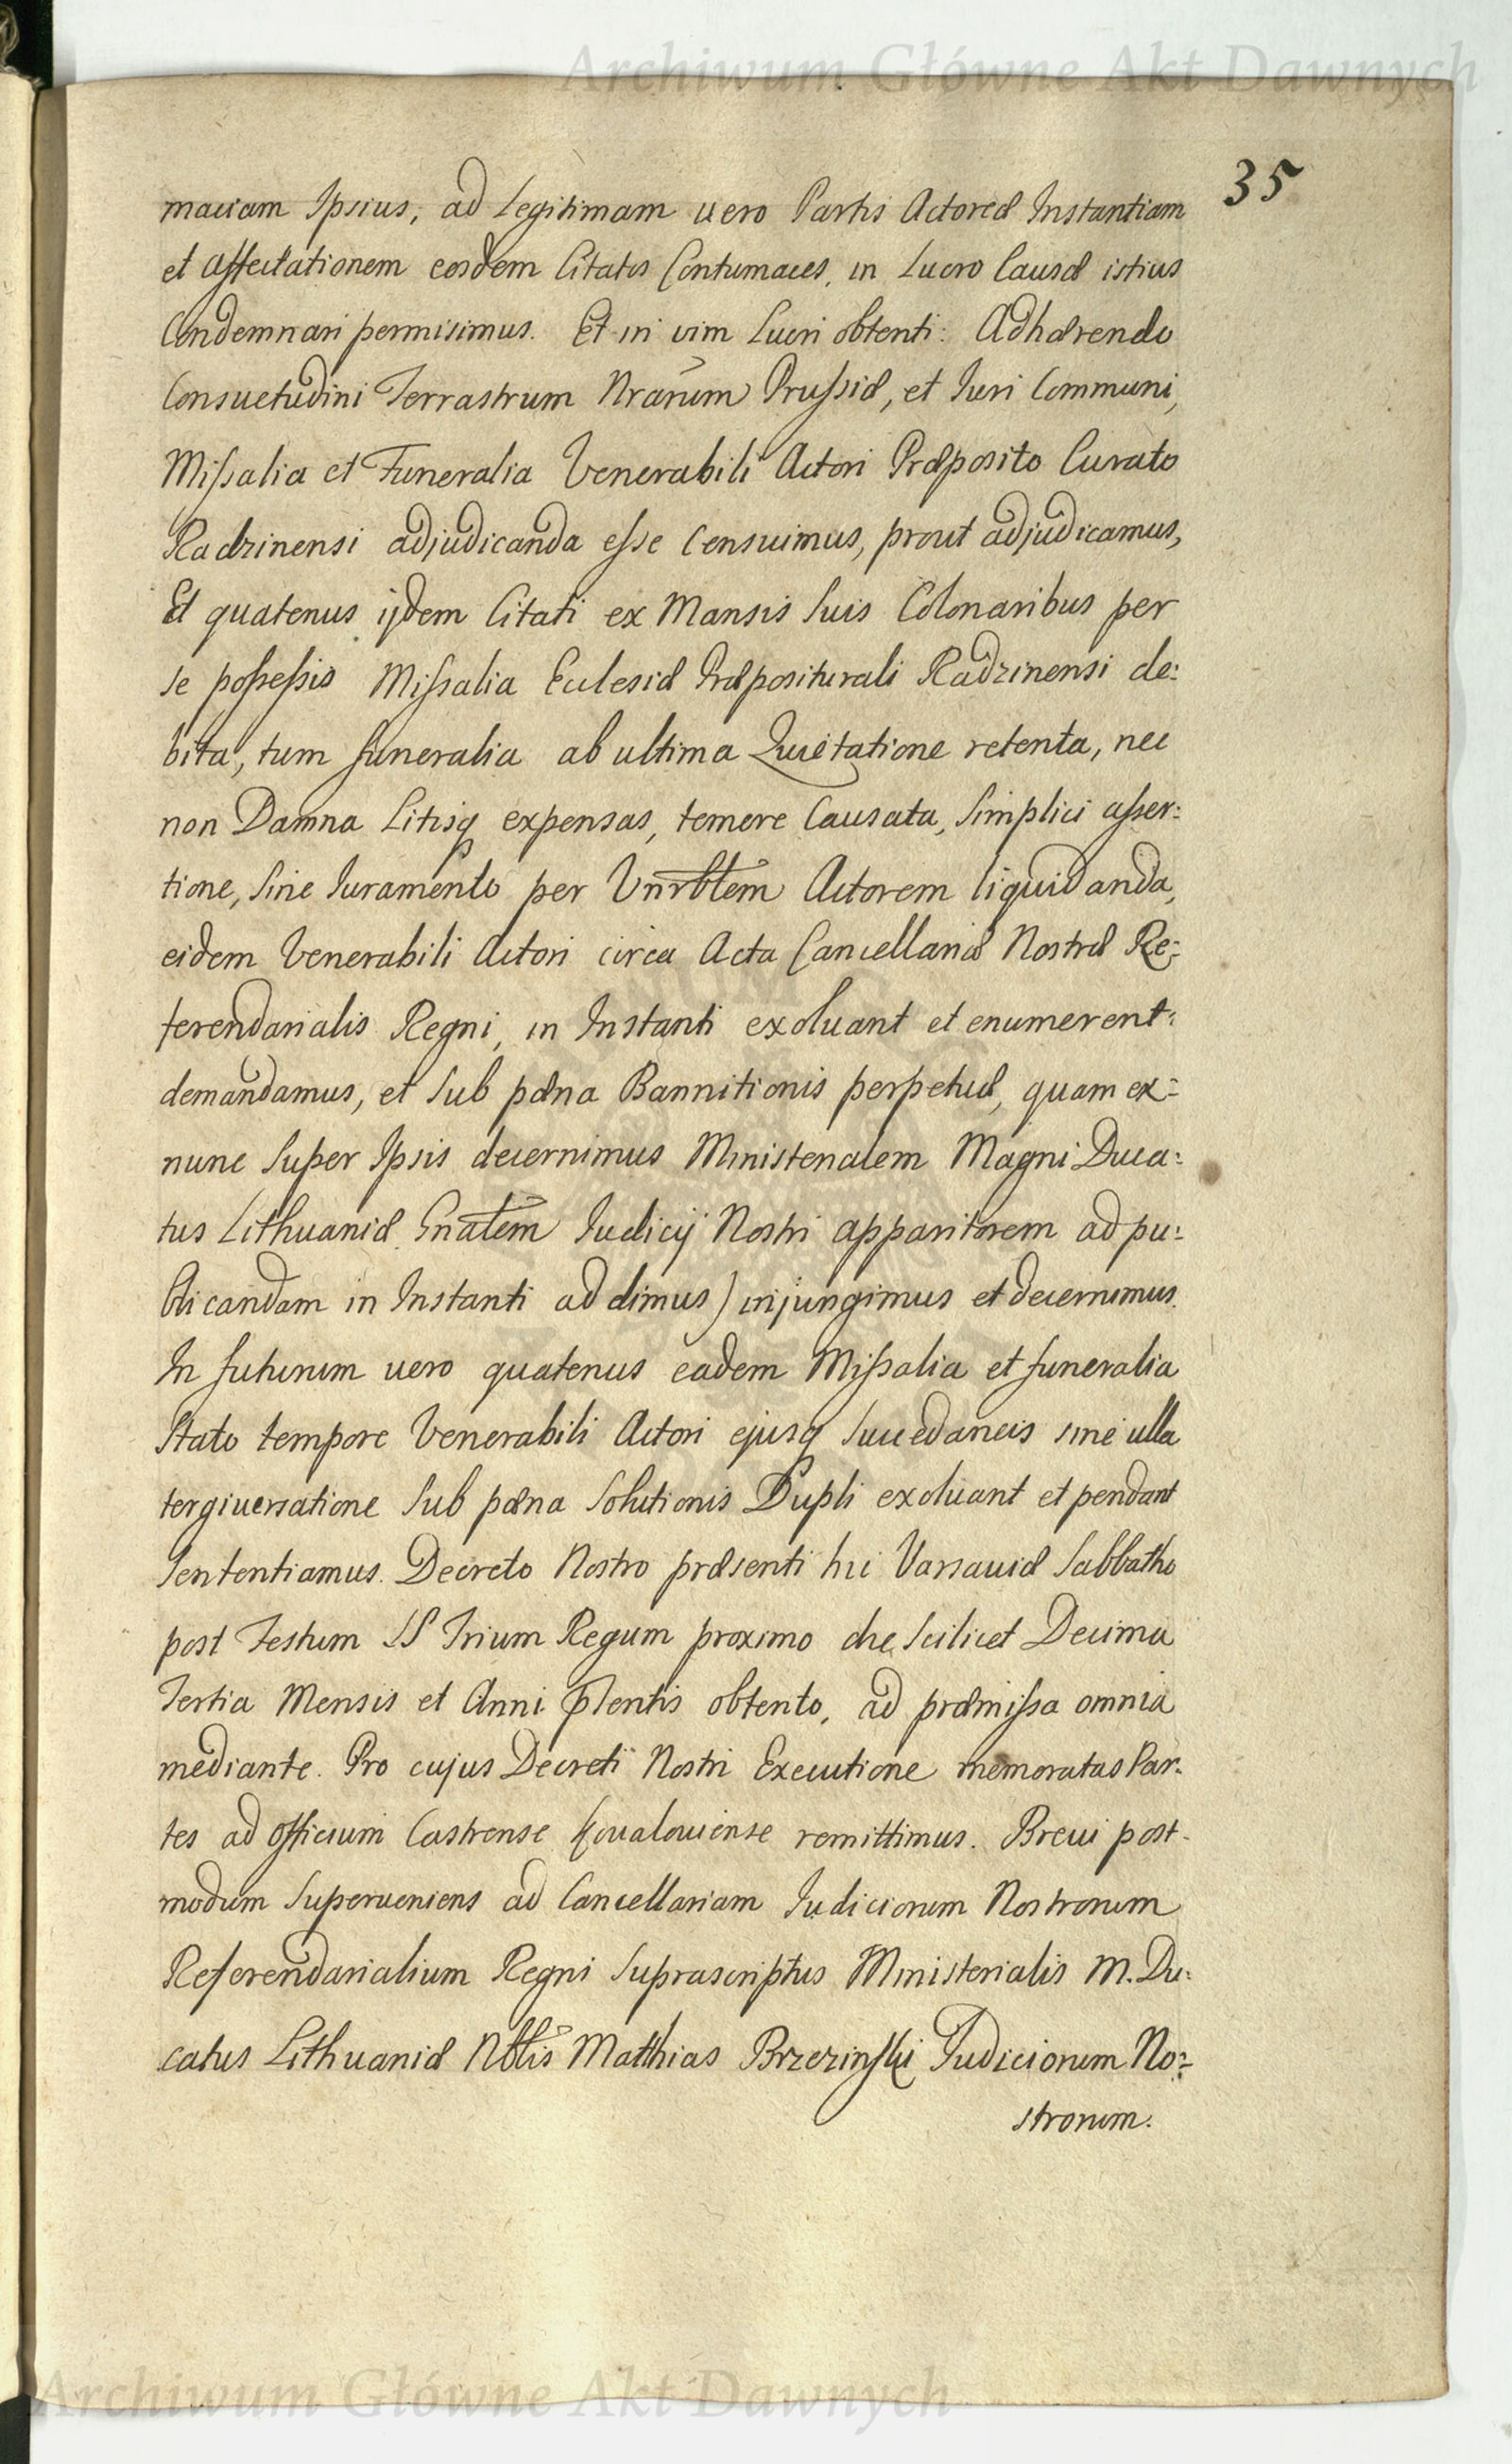 Archiwum Główne Akt Dawnych
35
maciam Ipsius, ad Legitimam vero Partis Actoreæ Instantiam
et affectationem eosdem Citatos Contumaces, in Lucro Causæ istius
Condemnari permisimus. Et in vim Lucri obtenti: Adhærendo
Consuetudini Terrastrum Nrarum Prussiæ, et Iuri Communi,
Missalia et Funeralia Venerabili Actori Præposito Curato
Radzinensi adjudicanda esse Censuimus, prout adjudicamus,
Et quatenus ijdem Citati ex Mansis Suis Colonaribus per
se possessis Missalia Ecclesiæ Præpositurali Radzinensi de:
bita, tum funeralia ab ultima Quietatione retenta, nec
non Damna Litisq expensas, temere Causata, Simplici asser:
tione, Sine Iuramento per Vnrbtem Actorem liquidanda,
eidem Venerabili Actori circa Acta Cancellariæ Nostræ Re:
ferendarialis Regni, in Instanti exoluant et enumerent:
demandamus, et Sub pæna Bannitionis perpetuæ, quam ex:
nunc Super Ipsis decernimus Ministerialem Magni Duca:
tus Lithuaniæ Gnatem Iudicij Nostri apparitorem ad pu:
blicandam in Instanti addimus) injungimus et decernimus.
In futurum vero quatenus eadem Missalia et funeralia
Stato tempore Venerabili Actori ejusq Succedaneis sine ulla
tergiuersatione Sub pæna Solutionis Dupli exoluant et pendant
Sententiamus. Decreto Nostro præsenti hic Varsauiæ Sabbatho
post Festum SS Trium Regum proximo die Scilicet Decima
Tertia Mensis et Anni pntis obtento, ad præmissa omnia
mediante. Pro cujus Decreti Nostri Executione memoratas Par:
tes ad Officium Castrense Kowalouiense remittimus. Breui post-
modum Superueniens ad Cancellariam Iudiciorum Nostrorum
Referendarialium Regni Suprascriptus Ministerialis M. Du:
catus Lithuaniæ Nblis Matthias Brzezinski Iudiciorum No:
strorum.
Archiwum Główne Akt Dawnych